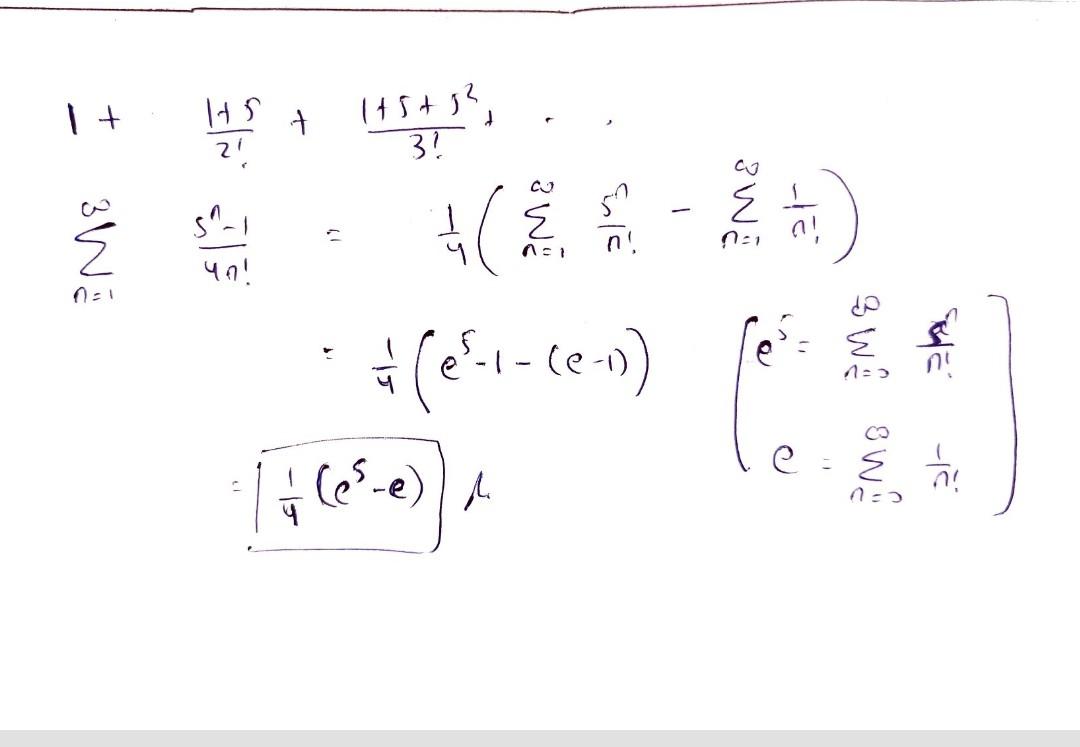 1 + (1+5)/2! + (1+5+5²)/3! + . . .
∞ Σ n=1 (5ⁿ-1)/4n! = 1/4 ( ∞ Σ n=1 5ⁿ/n! - ∞ Σ n=1 1/n! )
= 1/4 (e⁵-1-(e-1)) [ e⁵ = ∞ Σ n=0 5ⁿ/n!
e = ∞ Σ n=0 1/n! ]
= 1/4 (e⁵-e)